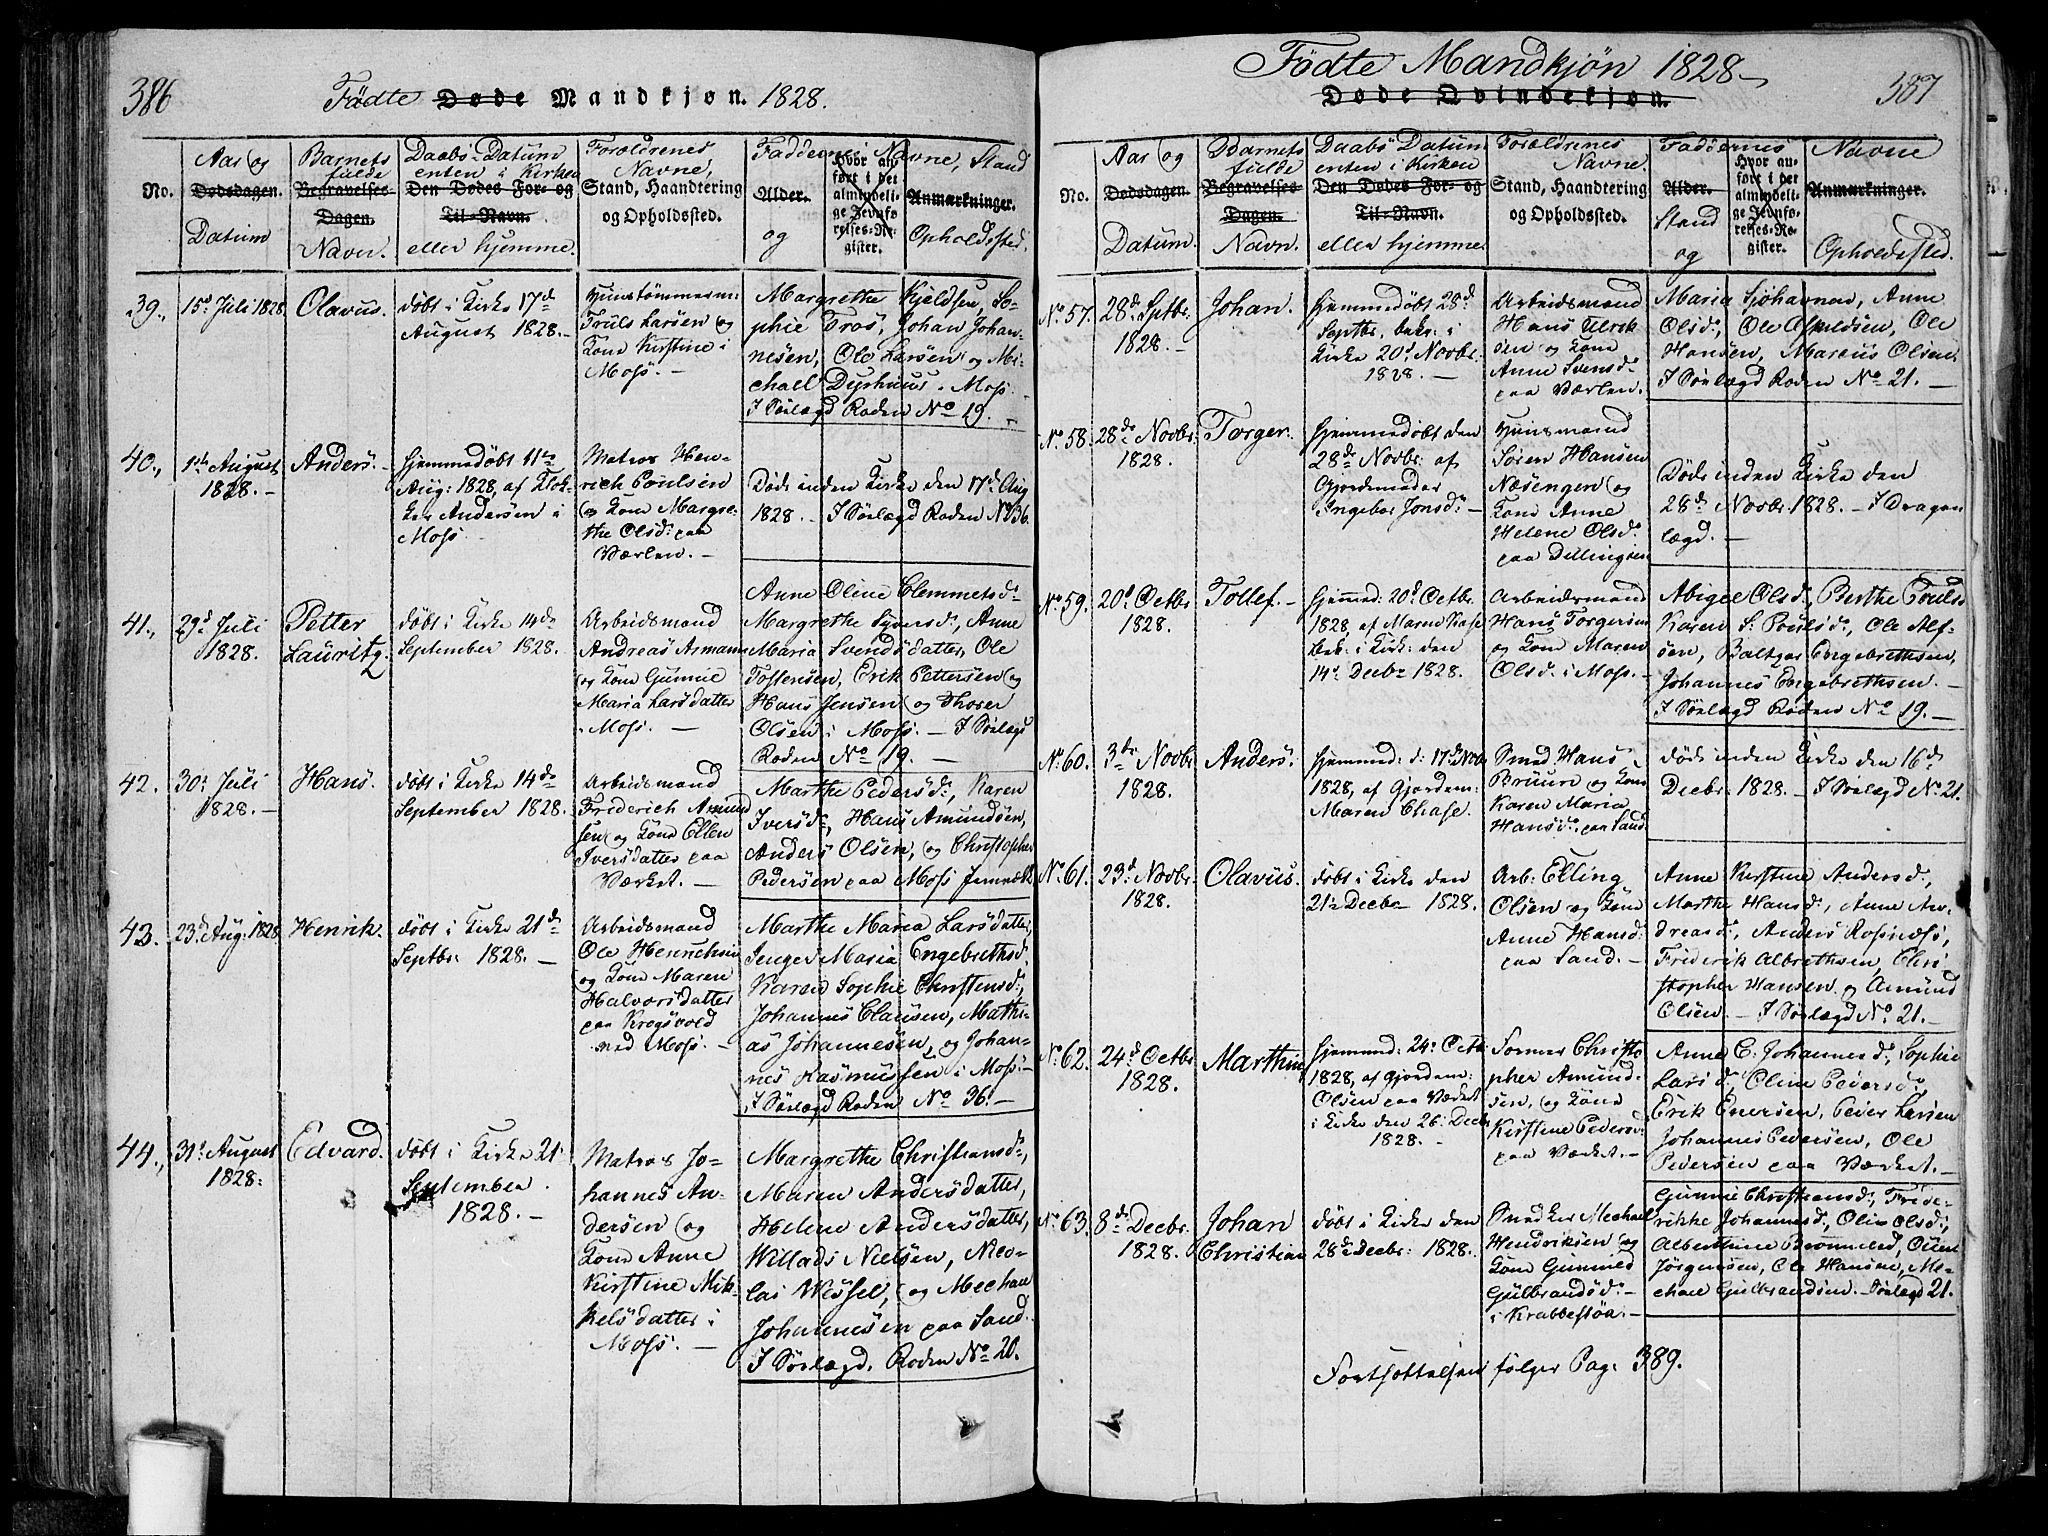 386
Födte Döde Mandkjøn. 1828.
No.
Aar og
Dødsdagen.
Datum
Barnets
fulde
Begravelses-
Dagen.
Navn.
Daabs-Datum
enten i Kirken
Den Dødes For- og
Til-Navn.
eller hjemme.
Forældrenes
Navne,
Stand, Haandtering
og Opholdssted.
Faddernes Navne, Stand
Alder.
og
Hvor an-
ført i det
almindeli-
ge Jevnfø-
relses-Re-
gister.
Anmærkninger.
Opholdssted.
39.,
15d Juli 1828
Olavus.
döbt i Kirke 17d
August 1828. —
Truls Larsen og
Kone Kirstine i
Moss. —
Margrethe Kjeldsen, So-
phie Tros, Johan Johan-
nesen, Ole Larsen og Mi-
chael Dyphuus. Moss.
I Sölægd Roden No 19. —
40.,
1ste August
1828. —
Anders. —
hjemmedöbt 11te
Aug: 1828, af Klok-
ker Andersen i
Moss. —
Matros Hen-
rich Poulsen
og Kone Margre-
the Olsd: paa
Værlen. —
Döde inden Kirke den 17d Aug
1828. — I Sölægd Roden No 36.
41.,
29d Juli
1828.
Petter
Lauritz.
döbt i Kirke 14de
September 1828. —
Arbeidsmand
Andreas Asmann
og Kone Gunnie
Maria Larsdatter
i Moss. —
Anne Oline Clemmetsd:
Margrethe Syversd:, Anne
Maria Svendsdatter, Ole
Tostensen, Erik Pettersen og
Hans Jensen og Thorer
Olsen i Moss. — I Sölægd
Roden No 19. —
42.
30: Juli
1828. —
Hans.
döbt i Kirke 14de
September 1828. —
Arbeidsmand
Friderich Amund
sen og Kone Ellen
Iversdatter paa
Værket. —
Marthe Pedersd:, Karen
Iversd:, Hans Amundsen,
Anders Olsen, og Christopher
Pedersen paa Moss Jernværk
43.
23d Aug: 1828
Henrik.
döbt i Kirke 21de
Septbr: 1828. —
Arbeidsmand
Ole Henrichsen
og Kone Maren
Halvorsdatter
paa Krogsvold
ved Moss. —
Marthe Maria Larsdatter,
Jenger Maria Engebrethsd:
Karen Sophie Christensd:,
Johannes Clausen, Mathi-
as Johannesen, og Johan-
nes Rasmussen i Moss. —
I Sölægd Roden No 36. —
44.,
31: August
1828:
Edvard.
döbt i Kirke 21:
September
1828. —
Matros Jo-
hannes An-
dersen og
Kone Anne
Kirstine Mik-
kelsdatter i
Moss. —
Margrethe Christiansd:,
Maren Andersdatter,
Helene Andersdatter,
Willads Nielsen, Nico-
lai Wessel, og Mechael
Johannesen paa Sand.
I Sölægd. Roden No 20.
Födte Mandkjön 1828 —
387
Døde Qvindekjøn.
No.
Aar og
Dødsdagen.
Datum.
Barnets
fulde
Begravelses-
Dagen.
Navn.
Daabs Datum
enten i Kirken
Den Dødes For- og
Til-Navn.
eller hjemme
Forældrenes
Navne.
Stand, Haandtering
og Opholdssted.
Faddernes Navne
Alder.
Stand
og
Hvor an-
ført i det
almindeli-
ge Jevnfø-
relses-Re-
gister.
Anmærkninger.
Opholdssted.
No 57.
28d Septbr.
1828. —
Johan.
Hjemmedöbt 28d
Septbr. bekr: i
Kirke 20d Novbr.
1828. —
Arbeidsmand
Hans Ulrik
sen og Kone
Anne Svensd:
paa Værlen.
Maria Sjöhavnen, Anne
Olsd:, Ole Aspeldsen, Ole
Hansen, Marcus Olsen.
I Sölægd Roden No 21. —
No 58.
28de Novbr.
1828.
Torger.
Hjemmedöbt den
28de Novbr. af
Gjordemoder
Ingebor Jonsd: —
Huusmand
Sören Hansen
Næsengen og
Kone Anne
Helene Olsd:
paa Dellingsen
Döde inden Kirke den
28de Novbr. 1828. — I Dragon
lægd. —
No 59.
20d Octbr
1828.
Tollef. —
hjemmed: 20d Octbr.
1828, af Maren Chase
bek: i Kirk: den
14d Decbr 1828.
Arbeidsmand
Hans Torgersen
og Kone Maren
Olsd: i Moss. —
Abigel Olsd:, Berthe Pouls
Karen S: Poulsd:, Ole Alf-
sen, Baltzer Engebrethsen,
Johannes Engebrethsen. —
I Sölægd Roden No 19. —
No 60.
3de Novbr
1828.
Anders.
hjemmed: d: 17de Nov
1828, af Gjordem:
Maren Chase.
Smed Hans
Bruun og Kone
Karen Maria
Hansd: paa Sand.
döde inden Kirke den 16de
Decbr: 1828. — I Sölægd No 21.
No 61.
23d Novbr.
1828.
Olavus.
döbt i Kirke den
21de Decbr 1828.
Arb: Elling
Olsen og Kone
Anne Hansd:
paa Sand. —
Anne Kirstine Andersd:,
Marthe Hansd:, Anne An-
dreasd:, Anders Rosnæss,
Friderik Albrethsen, Chri
stopher Hansen og Amund
Olsen. — I Sölægd No 21. —
No 62.
24d Octbr
1828.
Marthin
hjemmed: 24: Octb.
1828, af Gjordem:
Olsen paa Værket
i Kirke den 26: Decbr
1828. —
Former Christo
pher Amund-
sen, og Kone
Kirstine Pedersd:
paa Værket. —
Anne C: Johannesd:, Sophie
Larsd:, Oline Pedersd:,
Erik Enersen, Peder Larsen
Johannes Pedersen, Ole
Pedersen paa Værket. —
No 63.
8de Decbr.
1828.
Johan
Christian
döbt i Kirke den
28de Decbr: 1828.
Snedker Mechael
Hendriksen og
Kone Gunnild
Gulbrandsd: —
i Krabbestöa. —
Gunnie Christiansd:, Fride-
rikke Johannesd:, Oline Olsd:,
Alberthine Brönnild, Ouen
Jörgensen, Ole Hansen, Me-
chael Gulbrandsen. Sölægd 21.
Fortsættelsen följer Pag: 389.